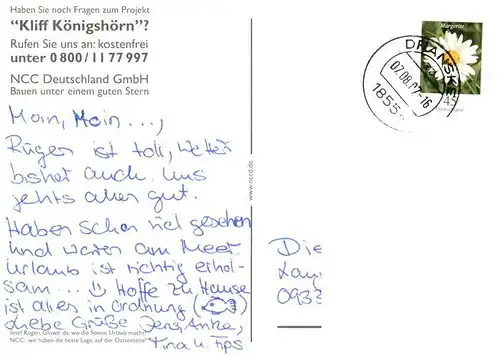 Haben Sie noch Fragen zum Projekt
"Kliff Königshörn"?
Rufen Sie uns an: kostenfrei
unter 0 800 / 11 77 997
NCC Deutschland GmbH
Bauen unter einem guten Stern
Moin, Moin ...,
Rügen ist toll, Wetter
bisher auch. Uns
jehts allen gut.
Haben schon viel gesehen
und waren am Meer.
Urlaub ist richtig erhol-
sam... Hoffe zu Hause
ist alles in Ordnung
Liebe Grüße Jens, Anke,
Tina u. Fips
Insel Rügen, Glowe: da, wo die Sonne Urlaub macht!
NCC: wir haben die beste Lage, auf der Ostseeseite!
www.nccd.de
Margerite
45
DRANSKE
02.08.07-16
1855
Die
0933